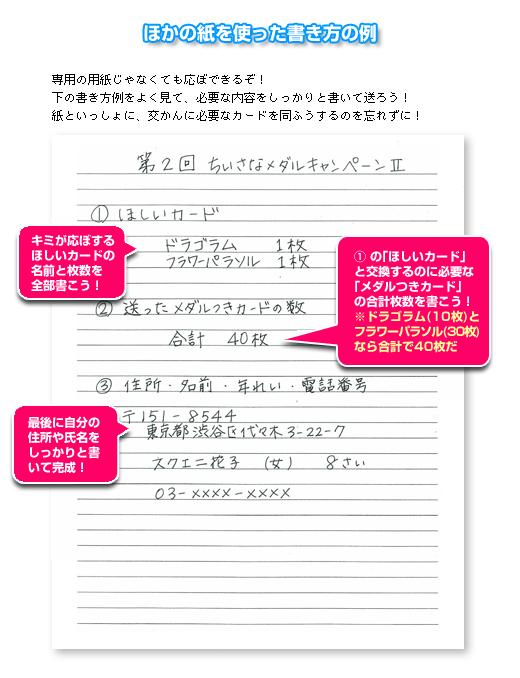 ほかの紙を使った書き方の例
専用の用紙じゃなくても応ぼできるぞ！
下の書き方例をよく見て、必要な内容をしっかりと書いて送ろう！
紙といっしょに、交かんに必要なカードを同ふうするのを忘れずに！
第2回 ちいさなメダルキャンペーンⅡ
① ほしいカード
キミが応ぼする
ほしいカードの
名前と枚数を
全部書こう！
ドラゴラム 1枚
フラワーパラソル 1枚
① の「ほしいカード」
と交換するのに必要な
「メダルつきカード」
の合計枚数を書こう！
※ドラゴラム(10枚)と
フラワーパラソル(30枚)
なら合計で40枚だ
② 送ったメダルつきカードの数
合計 40枚
③ 住所・名前・年れい・電話番号
最後に自分の
住所や氏名を
しっかりと書
いて完成！
〒151-8544
東京都渋谷区代々木3-22-7
スクエニ花子 (女) 8さい
03-××××-××××